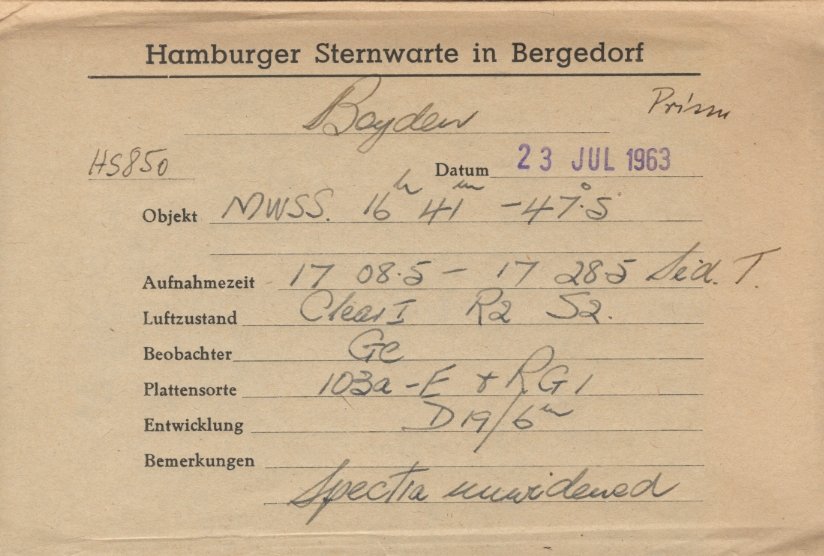 Hamburger Sternwarte in Bergedorf
Boyden Prism
HS850 Datum 23 JUL 1963
Objekt MWSS. 16h 41m -47°.5
Aufnahmezeit 17 08.5 - 17 28.5 Sid. T.
Luftzustand Clear I R2 S2.
Beobachter Ge
Plattensorte 103a-E + RG1
Entwicklung D19/6m
Bemerkungen
Spectra unwidened